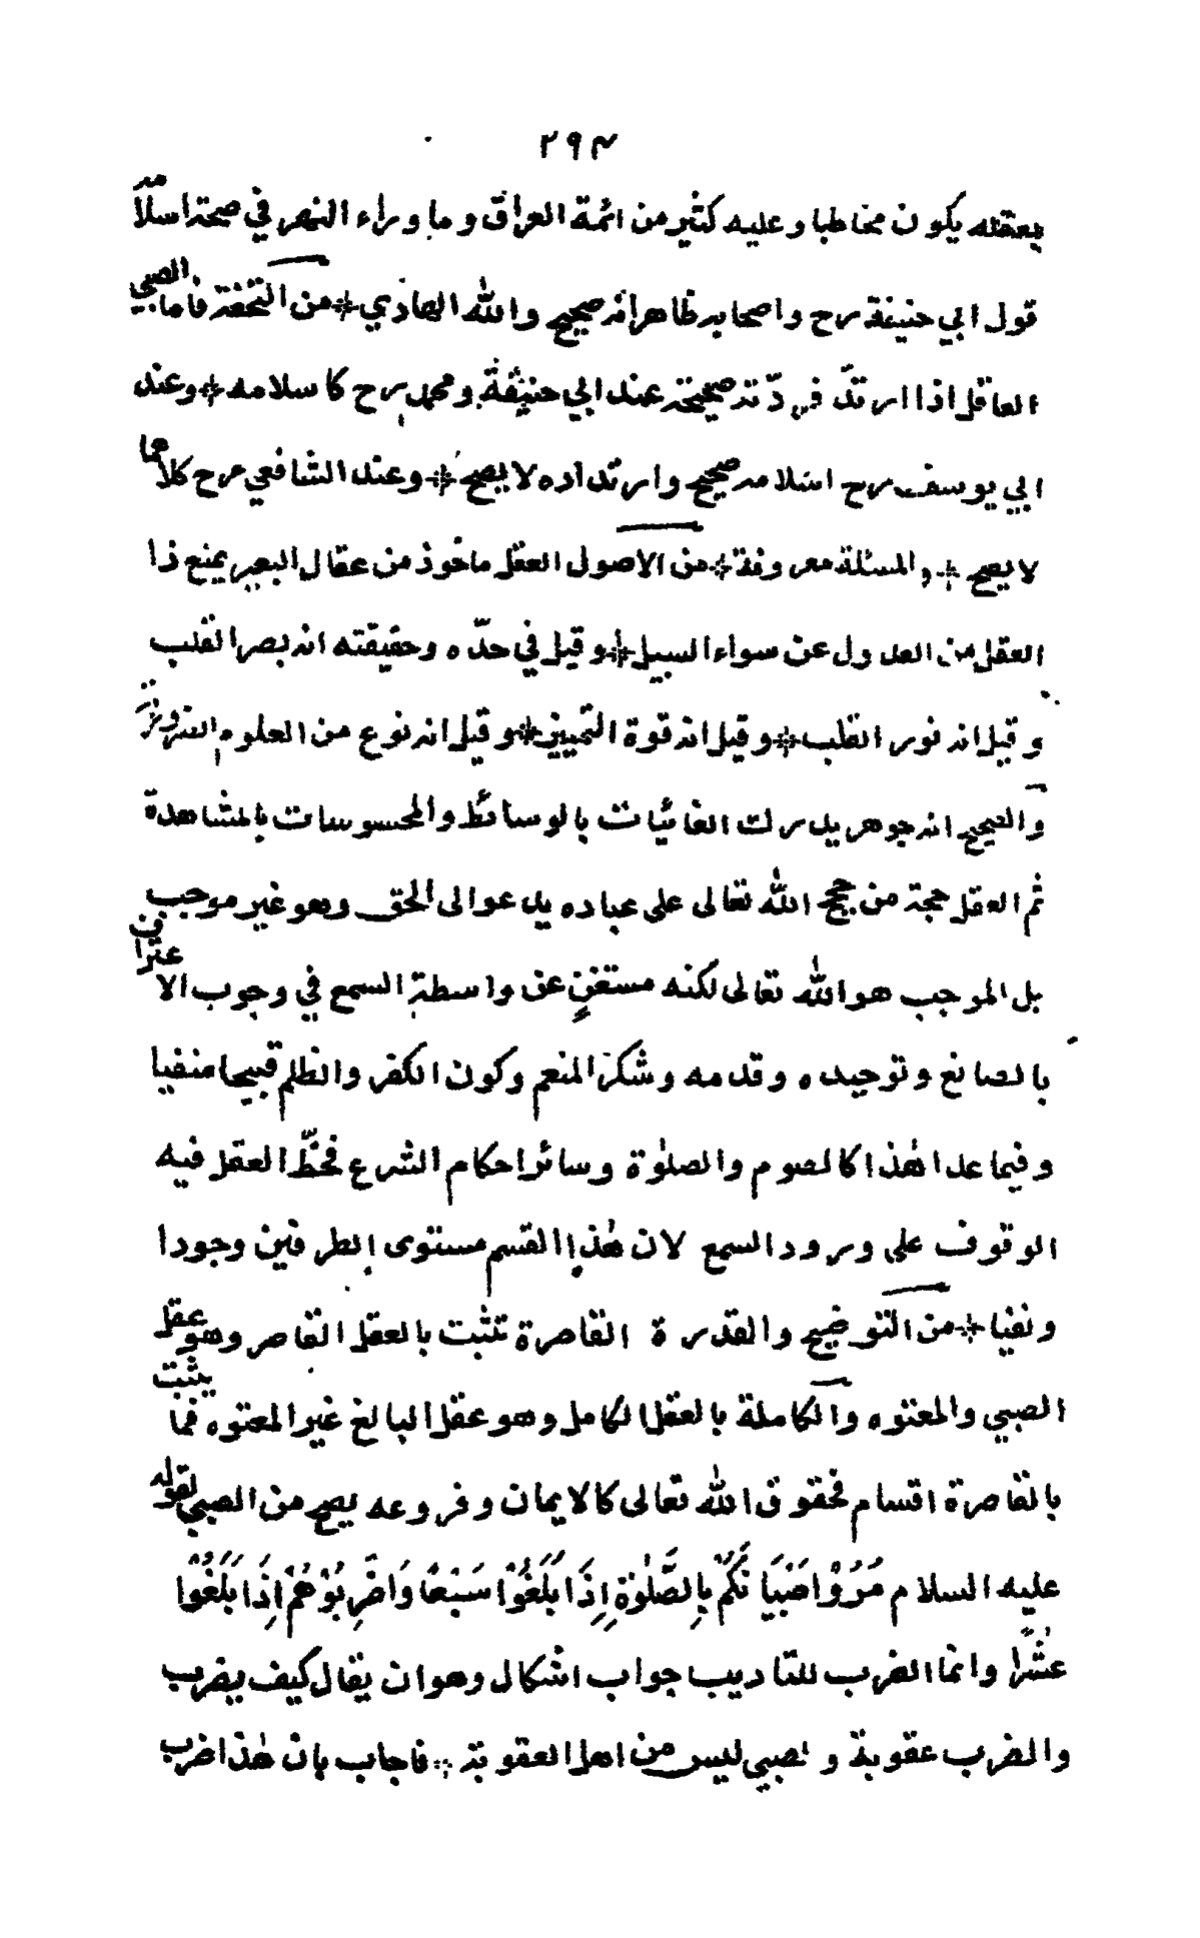 ٢٩٣
بعقله يكون مخاطبا وعليه كثير من ائمة العراق وما وراء النهر في صحة اسلامه
قول ابي حنيفة رح واصحابه ظاهرا انه صحيح والله الهادي * من التحفة فاما الصبي
العاقل اذا ارتد فردّته صحيحة عند ابي حنيفة ومحمد رح كاسلامه * وعند
ابي يوسف رح اسلامه صحيح وارتداده لا يصح * وعند الشافعي رح كلاهما
لا يصح * والمسئلة معروفة * من الاصول العقل ماخوذ من عقال البعير يمنع ذا
العقل من العدول عن سواء السبيل * وقيل في حدّه وحقيقته انه بصر القلب
وقيل انه نور القلب * وقيل انه قوة التمييز * وقيل انه نوع من العلوم الضرورية
والصحيح انه جوهر يدرك الغائبات بالوسائط والمحسوسات بالمشاهدة
ثم العقل حجة من حجج الله تعالى على عباده يدعو الى الحق وهو غير موجب
بل الموجب هو الله تعالى لكنه مستغنٍ عن واسطة السمع في وجوب الاعتراف
بالصانع وتوحيده وقدمه وشكر المنعم وكون الكفر والظلم قبيحا منفيا
وفيما عدا هٰذا كالصوم والصلوٰة وسائر احكام الشرع فحظّ العقل فيه
الوقوف على ورود السمع لان هٰذا القسم مستوى الطرفين وجودا
ونفيا * من التوضيح والقدرة القاصرة تثبت بالعقل القاصر وهو عقل
الصبي والمعتوه والكاملة بالعقل الكامل وهو عقل البالغ غير المعتوه فما يثبت
بالقاصرة اقسام فحقوق الله تعالى كالايمان وفروعه يصح من الصبي لقوله
عليه السلام مُرُوْا صِبْيَانَكُمْ بِالصَّلٰوةِ إِذَا بَلَغُوْا سَبْعًا وَاضْرِبُوْهُمْ اِذَا بَلَغُوْا
عَشْرًا وانما الضرب للتاديب جواب اشكال وهو ان يقال كيف يضرب
والضرب عقوبة والصبي ليس من اهل العقوبة * فاجاب بان هٰذا ضرب